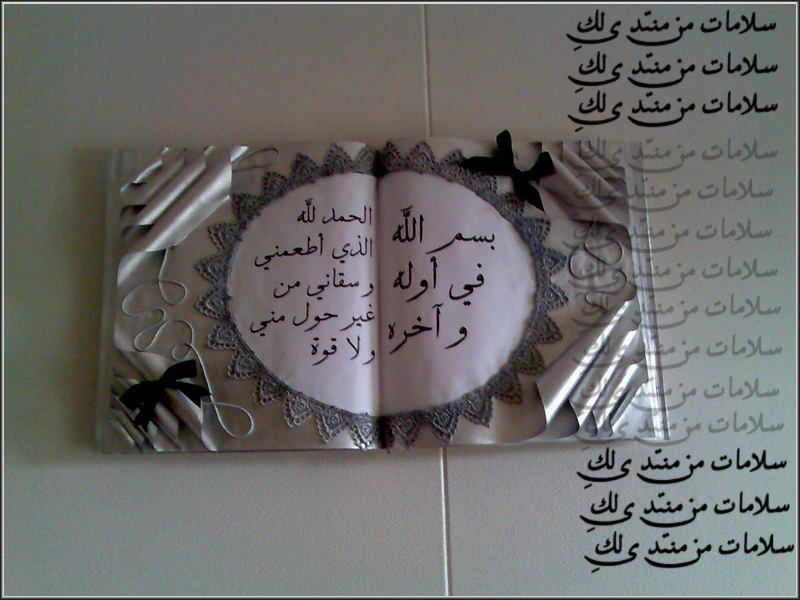 بسم الله
في أوله
و آخره
الحمد لله
الذي أطعمني
و سقاني من
غير حول مني
و لا قوة
سلامات من منتدى لكِ
سلامات من منتدى لكِ
سلامات من منتدى لكِ
سلامات من منتدى لكِ
سلامات من منتدى لكِ
سلامات من منتدى لكِ
سلامات من منتدى لكِ
سلامات من منتدى لكِ
سلامات من منتدى لكِ
سلامات من منتدى لكِ
سلامات من منتدى لكِ
سلامات من منتدى لكِ
سلامات من منتدى لكِ
سلامات من منتدى لكِ